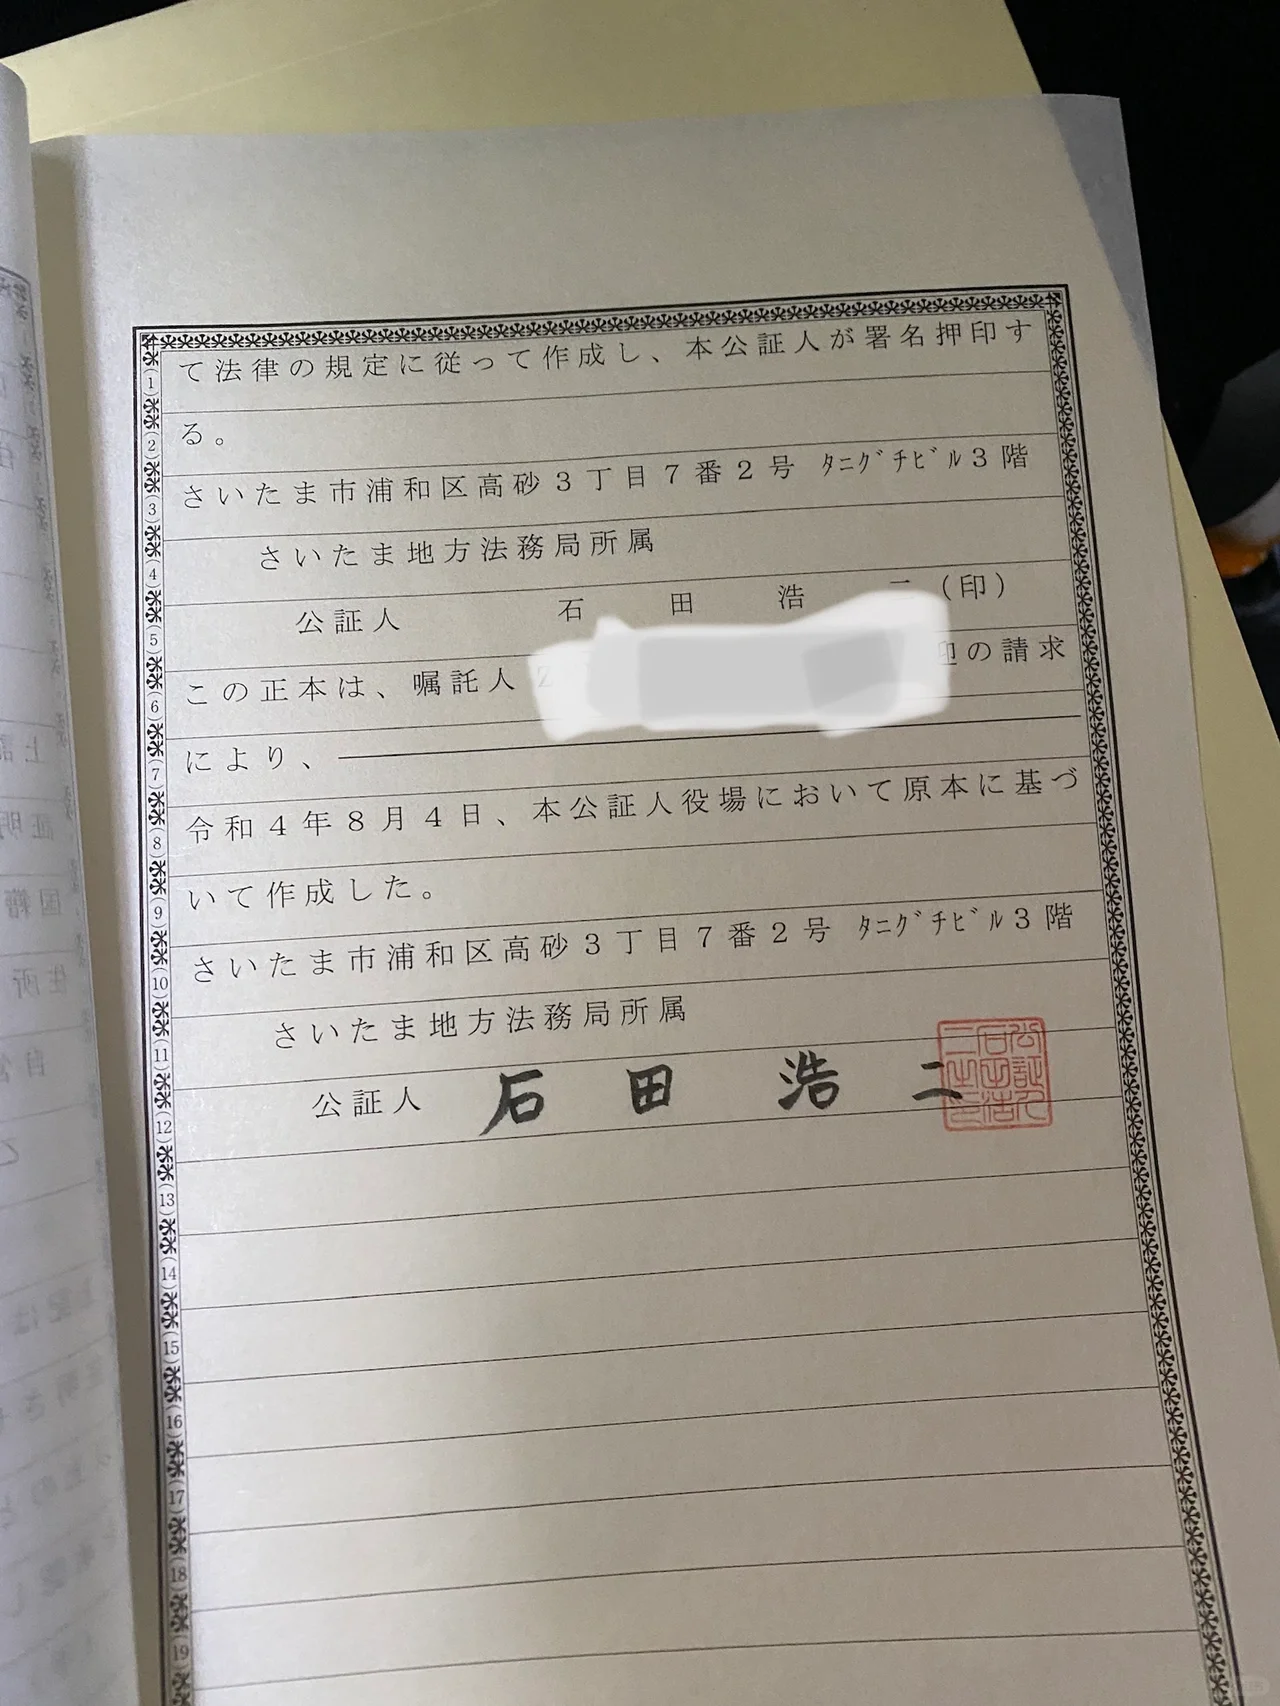 て法律の規定に従って作成し、本公証人が署名押印す
る。
さいたま市浦和区高砂３丁目７番２号 ﾀﾆｸﾞﾁﾋﾞﾙ３階
さいたま地方法務局所属
公証人 石 田 浩 二 (印)
この正本は、嘱託人 の請求
により、
令和４年８月４日、本公証人役場において原本に基づ
いて作成した。
さいたま市浦和区高砂３丁目７番２号 ﾀﾆｸﾞﾁﾋﾞﾙ３階
さいたま地方法務局所属
公証人 石 田 浩 二
1
2
3
4
5
6
7
8
9
10
11
12
13
14
15
16
17
18
19